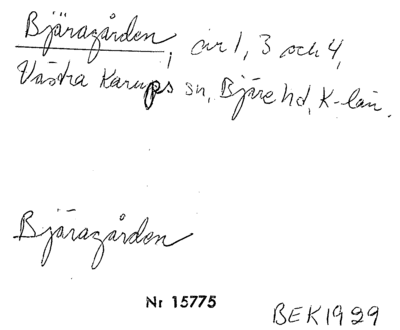 Bjäragården, nr 1, 3 och 4,
Västra Karups sn, Bjäre hd, K-län.
Bjäragården
Nr 15775
BEK1929